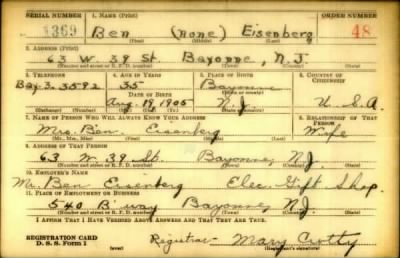 SERIAL NUMBER 1. NAME (Print) ORDER NUMBER
1369 Ben (none) Eisenberg 48
(First) (Middle) (Last)
2. ADDRESS (Print)
63 W 39 St. Bayonne, N.J.
(Number and street or R. F. D. number) (Town) (County) (State)
3. TELEPHONE 4. AGE IN YEARS 5. PLACE OF BIRTH 6. COUNTRY OF CITIZENSHIP
Bay. 3.3592 35 Bayonne
DATE OF BIRTH
Aug. 19 1905 N.J. U.S.A.
(Exchange) (Number) (Mo.) (Day) (Yr.) (State or country)
7. NAME OF PERSON WHO WILL ALWAYS KNOW YOUR ADDRESS 8. RELATIONSHIP OF THAT PERSON
Mrs. Ben Eisenberg Wife
(Mr., Mrs., Miss) (First) (Middle) (Last)
9. ADDRESS OF THAT PERSON
63 W. 39 St. Bayonne N.J.
(Number and street or R. F. D. number) (Town) (County) (State)
10. EMPLOYER'S NAME
Mr. Ben Eisenberg Elec. Gift Shop
11. PLACE OF EMPLOYMENT OR BUSINESS
540 B'way Bayonne, N.J.
(Number and street or R. F. D. number) (Town) (County) (State)
I AFFIRM THAT I HAVE VERIFIED ABOVE ANSWERS AND THAT THEY ARE TRUE.
REGISTRATION CARD
D. S. S. Form 1 (over) Registrar- Mary Crotty
(Registrant's signature)